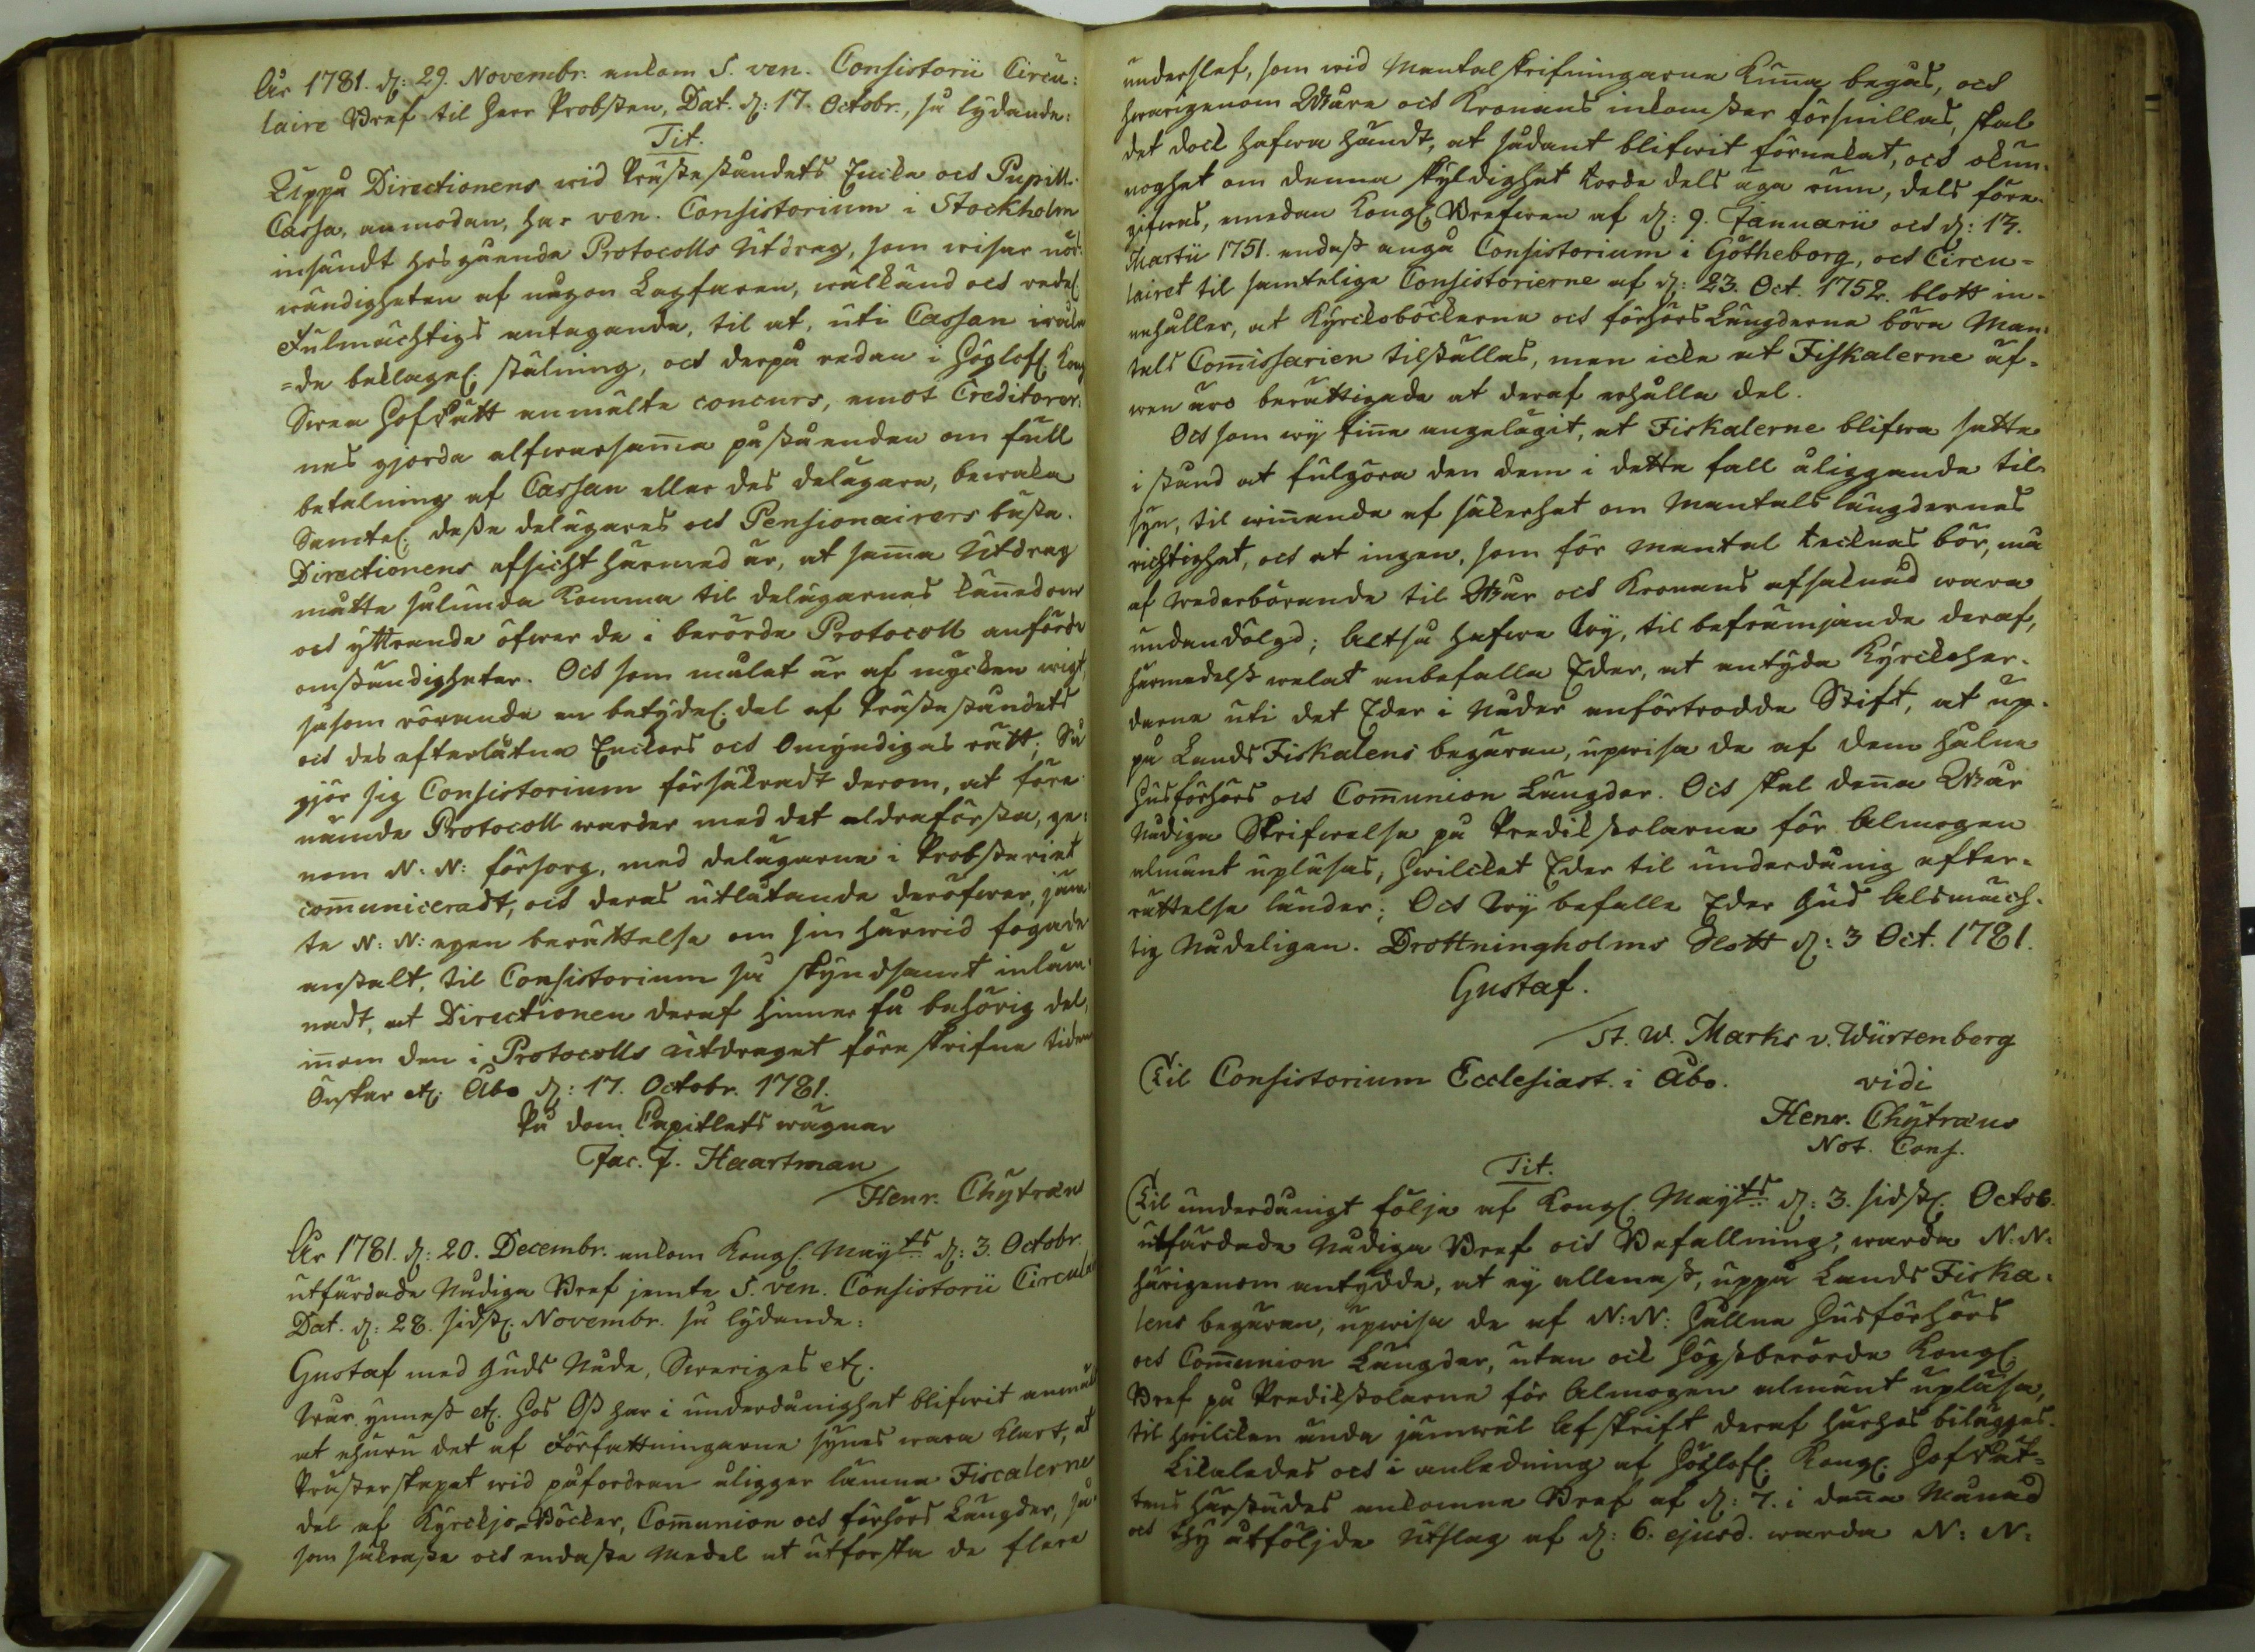 År 1781. d: 29. Novembr. ankom S. ven. Consistorii Circu:
laire Bref til Herr Probsten, Dat. d: 17. Octobr., så lydande:
Tit.
Uppå Directionens wid Prästeståndets Enke och Pupill.
Cassa, anmodan, har ven. Consistorium i Stockholm
insändt hosgående Protocolls Utdrag, som wisar nöd:
wändigheten af någon Lagfaren, wälkänd och redel.
Fulmächtigs antagande, til at, uti Cassan iråka
=de beklagel. stälning, och derpå redan i Höglofl. Kongl.
Swea HofRätt anmälte concurs, emot Creditorer:
nes gjorda alfwarsam̄a påståenden om full
betalning af Cassan eller des delägare, bewaka
Samtel. desse delägares och Pensionairers bästa.
Directionens afsicht härmed är, at sam̄a Utdrag
måtte sålunda komma til delägarnes kän̄edom
och yttrande öfwer de i berörde Protocoll anförde
omständigheter. Och som målet är af mycken wigt,
såsom rörande en betydel. del af Prästeståndets
och des efterlåtna Enkors och Omyndigas rätt; Så
gjör sig Consistorium försäkradt derom, at före
nämde Protocoll warder med det aldraförsta, ge:
nom N: N: försorg, med delägarne i Probsteriet
com̄uniceradt, och deras utlåtande deröfwer, jäm
te N: N: egen berättelse om sin härwid fogade
anstalt, til Consistorium så skyndsamt inläm:
nadt, at Directionen deraf hinner få behörig del,
in̄om den i Protocolls utdraget föreskrifne tiden
Önskar etc. Åbo d: 17. Octobr. 1781.
På Dom Capitlets wägnar
Jac. J. Haartman
Henr. Chytræus
År 1781. d: 20. Decembr. ankom Kongl. Mayts d: 3. Octobr.
utfärdade Nådiga Bref jemte S. ven. Consistorii Circulair
Dat. d: 28. sidstl. Novembr. så lydande:
Gustaf med Guds Nåde, Sweriges etc.
Wår ynnest etc. Hos Oss har i underdånighet blifwit anmält
at ehuru det af Författningarne synes wara klart, at
Prästerskapet wid påfordran åligger lämna Fiscalerne
del af Kyrckjo-Böcker, Com̄union och förhörs Längder, så:
som säkraste och endaste Medel at utforska de flere
underslef, som wid Mantalskrifningarne kun̄a begås, och
hwarigenom Wåre och Kronans inkomster försnillas, skal
det dock hafwa händt, at sådant blifwit förnekat, och okun:
noghet om denna skyldighet torde dels äga rum, dels före:
gifwas, emedan Kongl. Brefwen af d: 9. Januarii och d: 13.
Martii 1751. endast angå Consistorium i Götheborg, och Circu=
lairet til samtelige Consistorierne af d: 23. Oct. 1752. blott in=
nehåller, at Kyrckoböckerne och förhörs Längderne böra Man:
tals Com̄issarien tilställas, men icke at Fiskalerne äf=
wen äro berättigade at deraf erhålla del.
Och som wij fin̄e angelägit, at Fiskalerne blifwa satte
i stånd at fulgöra den dem i detta fall åliggande til
syn, til win̄ande af säkerhet om Mantalslängdernes
richtighet, och at ingen, som för Mantal tecknas bör, må
af wederbörande til Wår och Kronans afsaknad wara
undandölgd; Altså hafwe Wij, til befrämjande deraf,
härmedelst welat anbefalla Eder, at antyda Kyrckoher=
darne uti det Eder i Nåder anförtrodde Stift, at up=
på Lands Fiskalens begäran, upwisa de af dem hålne
Husförhörs och Com̄union Längder. Och skal den̄a Wår
Nådiga Skrifwelse på Predikstolarne för Almogen
almänt upläsas; Hwilcket Eder til underdånig efter=
rättelse länder; Och Wij befalle Eder Gud Alsmäch=
tig Nådeligen. Drottningholms Slott d: 3 Oct. 1781.
Gustaf.
St. W. Marks v. Würtenberg
Til Consistorium Ecclesiast. i Åbo.
vidi
Henr. Chytræus
Not. Cons.
Tit.
Til underdånigt följe af Kongl. Mayts d: 3. sidstl. Octob.
utfärdade Nådiga Bref och Befallning, warda N: N:
härigenom antydde, at ej allenast, uppå Lands Fiska:
lens begäran, upwisa de af N: N: hållne Husförhörs
och Com̄union Längder, utan och högstberörde Kongl.
Bref på Predikstolarne för Almogen almänt upläsa,
til hwilcken ända jämwäl Afskrift deraf härhos bilägges.
Likaledes och i anledning af Höglofl. Kongl. HofRät=
tens härstädes ankomne Bref af d: 7. i den̄a Månad
och thy åtföljde Utslag af d: 6. ejusd. warda N: N: